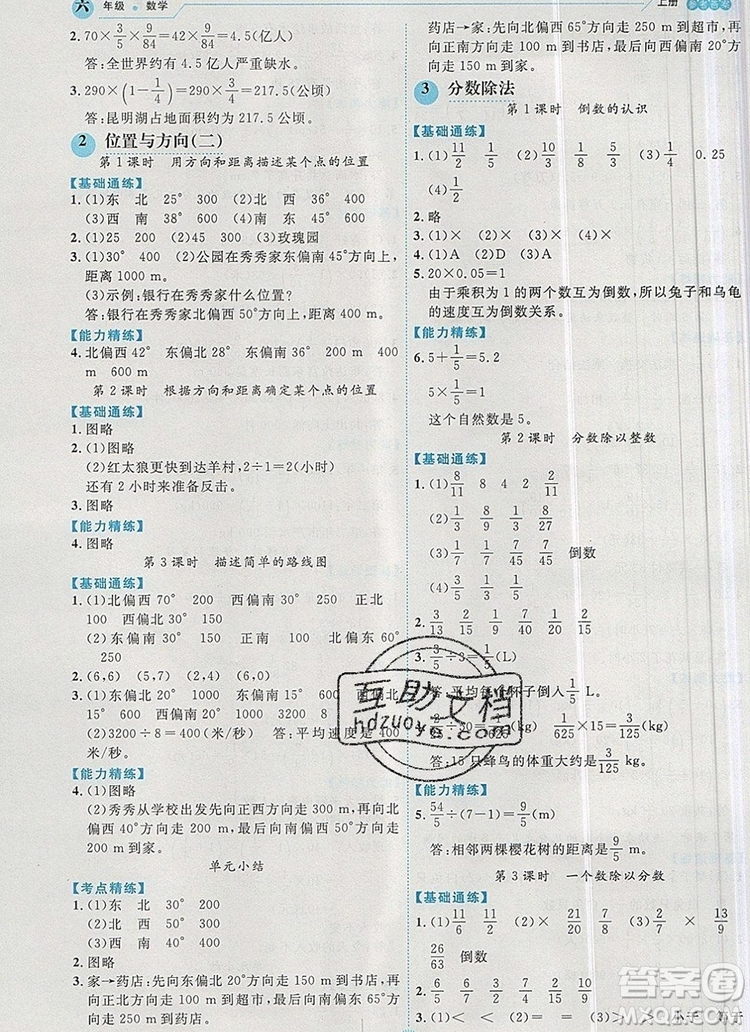 六 年级 · 数学
2. 70×3/14×3/10=4.5(亿人)
答:全世界约有 4.5 亿人严重缺水。
3. 290×(1-1/4)=290×3/4=217.5(公顷)
答:昆明湖占地面积约为 217.5 公顷。
2 位置与方向(二)
第 1 课时 用方向和距离描述某个点的位置
【基础通练】
1. (1)东 北 25° 300 (2)北 西 60° 200
(3)西 南 38° 600 (4)东 南 45° 400
2. (1)25 200 (2)45 300 (3)玫瑰园
3. (1)30° 400 (2)公园在秀秀家东偏南 45°方向上,
距离 1000 m。
(3)示例:银行在秀秀家什么位置?
答:银行在秀秀家北偏西 50°方向上,距离 600 m。
【能力精练】
4. 北偏西 42° 东偏北 28° 东偏南 30° 200 400
m 600 m
第 2 课时 根据方向和距离确定某个点的位置
【基础通练】
1. 图略
2. (1)图略
(2)红太狼更快到达羊村,2÷1=2(小时)
还有 2 小时来准备反击。
3. 图略
【能力精练】
4. 图略
第 3 课时 描述简单的路线图
【基础通练】
1. (1)北偏西 70° 200 西偏南 30° 250 正北
100 西偏北 30° 150
(2)东偏南 30° 150 正南 100 北偏东 70°
250
2. (6,6) (6,4) (5,2) (0,7)
3. (1)东偏北 20° 1000 东偏南 30° 1000 东偏
北 50° 1200 西偏南 10° 3200 8
(2)3200÷8=400(米/秒) 答:平均速度是 400
米/秒。
【能力精练】
(2)秀秀从学校出发先向正西方向走 300 m,再向北
偏西 50°方向走 200 m,最后向南偏西 60°方向走
400 m 到家。
单元小结
【考点精练】
1. (1)东 北 30° 200
(2)北 西 50° 150
(3)西 南 40° 300
2. 图略
3. 家→药店:先向东偏北 20°方向走 150 m,再向东偏
南 40°方向走 100 m,最后向正东方向走 250 m
上册
药店→家:先向正西方向走 250 m,再向西偏北 40°
方向走 100 m 到书店,最后向西偏南 20°方向
走 150 m 到家。
3 分数除法
第 1 课时 倒数的认识
【基础通练】
1. (1)11/2 1/6 1/5 (2)10/3 9/5 (3)4/3 0.25
(4)1/2
2. 略
3. (1)× (2)× (3)× (4)×
4. (1)A (2)D (3)A
5. 20×0.05=1
由于乘积为 1 的两个数互为倒数,所以兔子和乌龟
的速度互为倒数关系。
【能力精练】
6. 5+1/5=5.2
5×1/5=1
这个自然数是 5。
第 2 课时 分数除以整数
【基础通练】
1. (1)8/11 8 4 2 2/11
(2)1/3 4/9 1/3 4/9 1/8 1/8
(3)1/9 1/9 7/45 7/45 倒数
(4)3/5 1/4 1/5
2. 3/13 2/15 1/9 7/16 1/40 2/15
3. 3/5÷3=1/5(L)
答:平均每个杯子倒入1/5 L。
÷50=1/625(kg) 1/625×15=3/125(kg)
答:15 只蜂鸟的体重大约是3/125 kg。
【能力精练】
5. 54/5÷(7-1)=9/5(m)
答:相邻两棵樱花树的距离是9/5 m。
第 3 课时 一个数除以分数
【基础通练】
1. (1)11/6 11/6 (2)× 21/20 7/8 (3)2/7 × 13/9
26/63 倒数
2. (1)< < = (2)< > = (3)>
互助文档
hdzuoye.com
答案圈
MXQE.COM